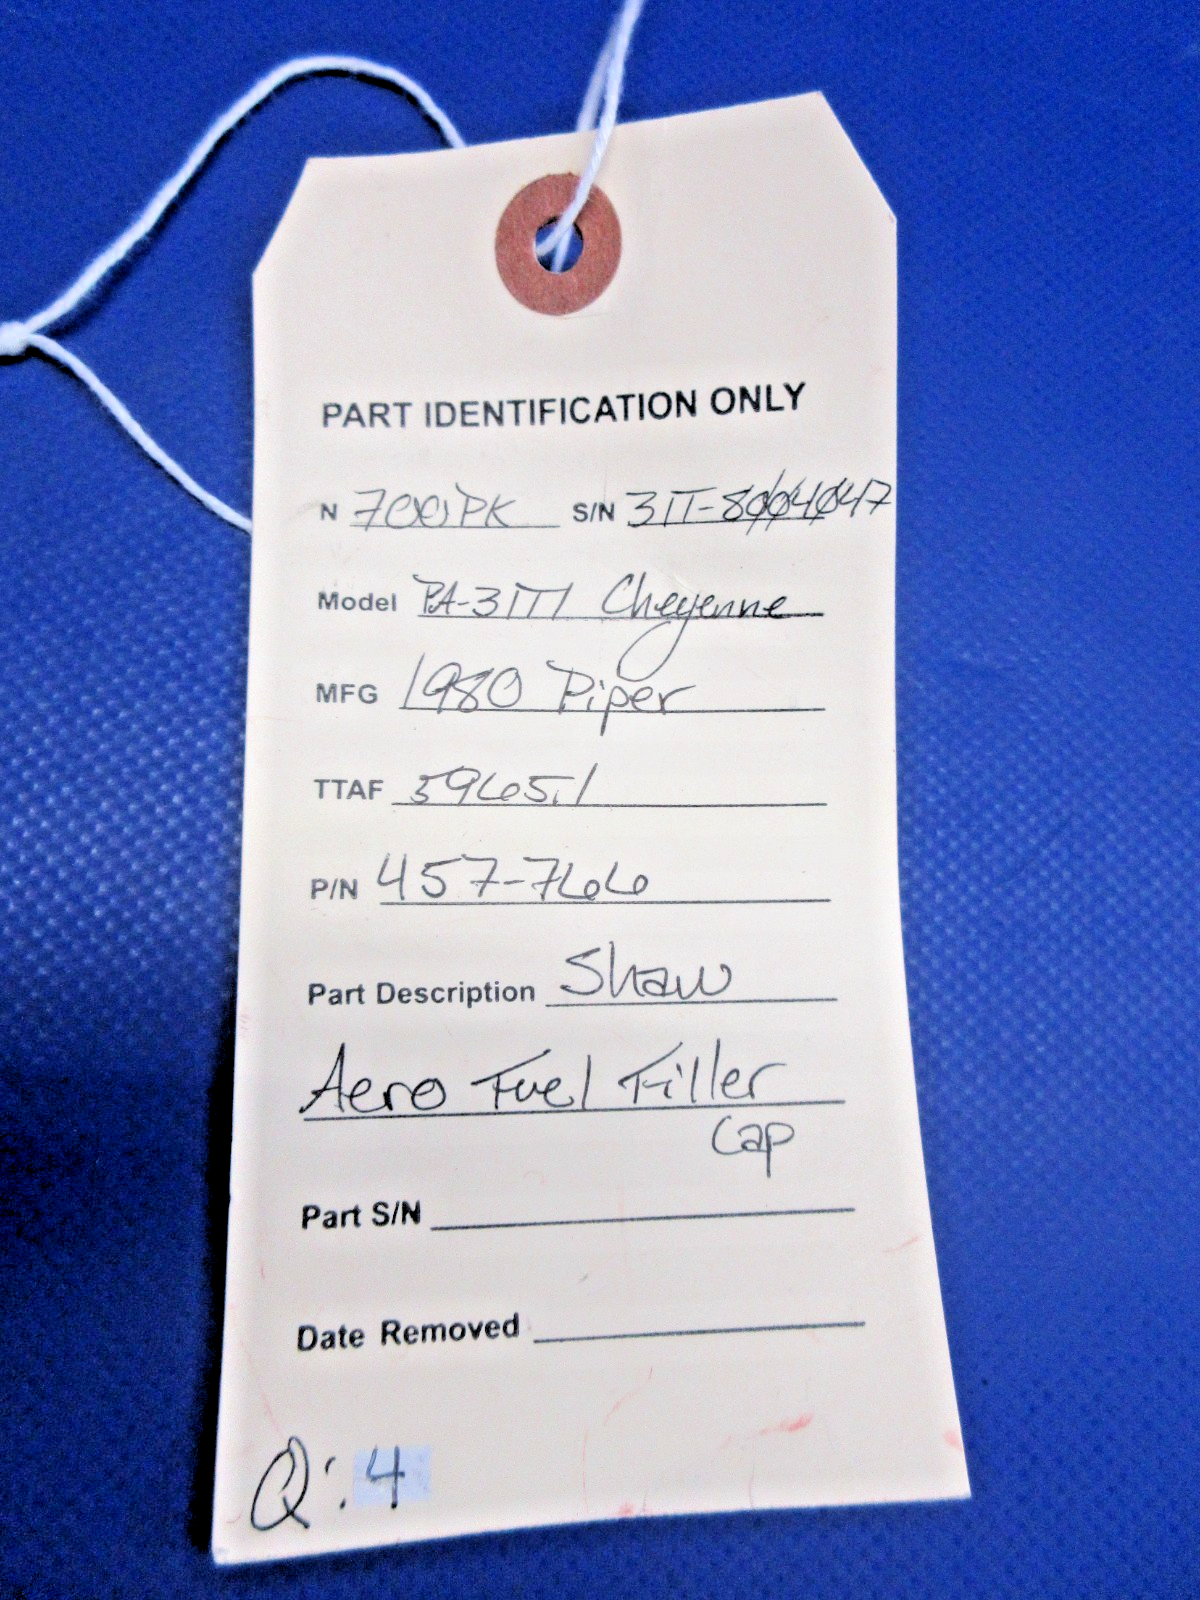 PART IDENTIFICATION ONLY
N 700PK S/N 31T-8004047
Model PA-31T1 Cheyenne
MFG 1980 Piper
TTAF 5965.1
P/N 457-766
Part Description Shaw
Aero Fuel Filler
Cap
Part S/N
Date Removed
Q: 4